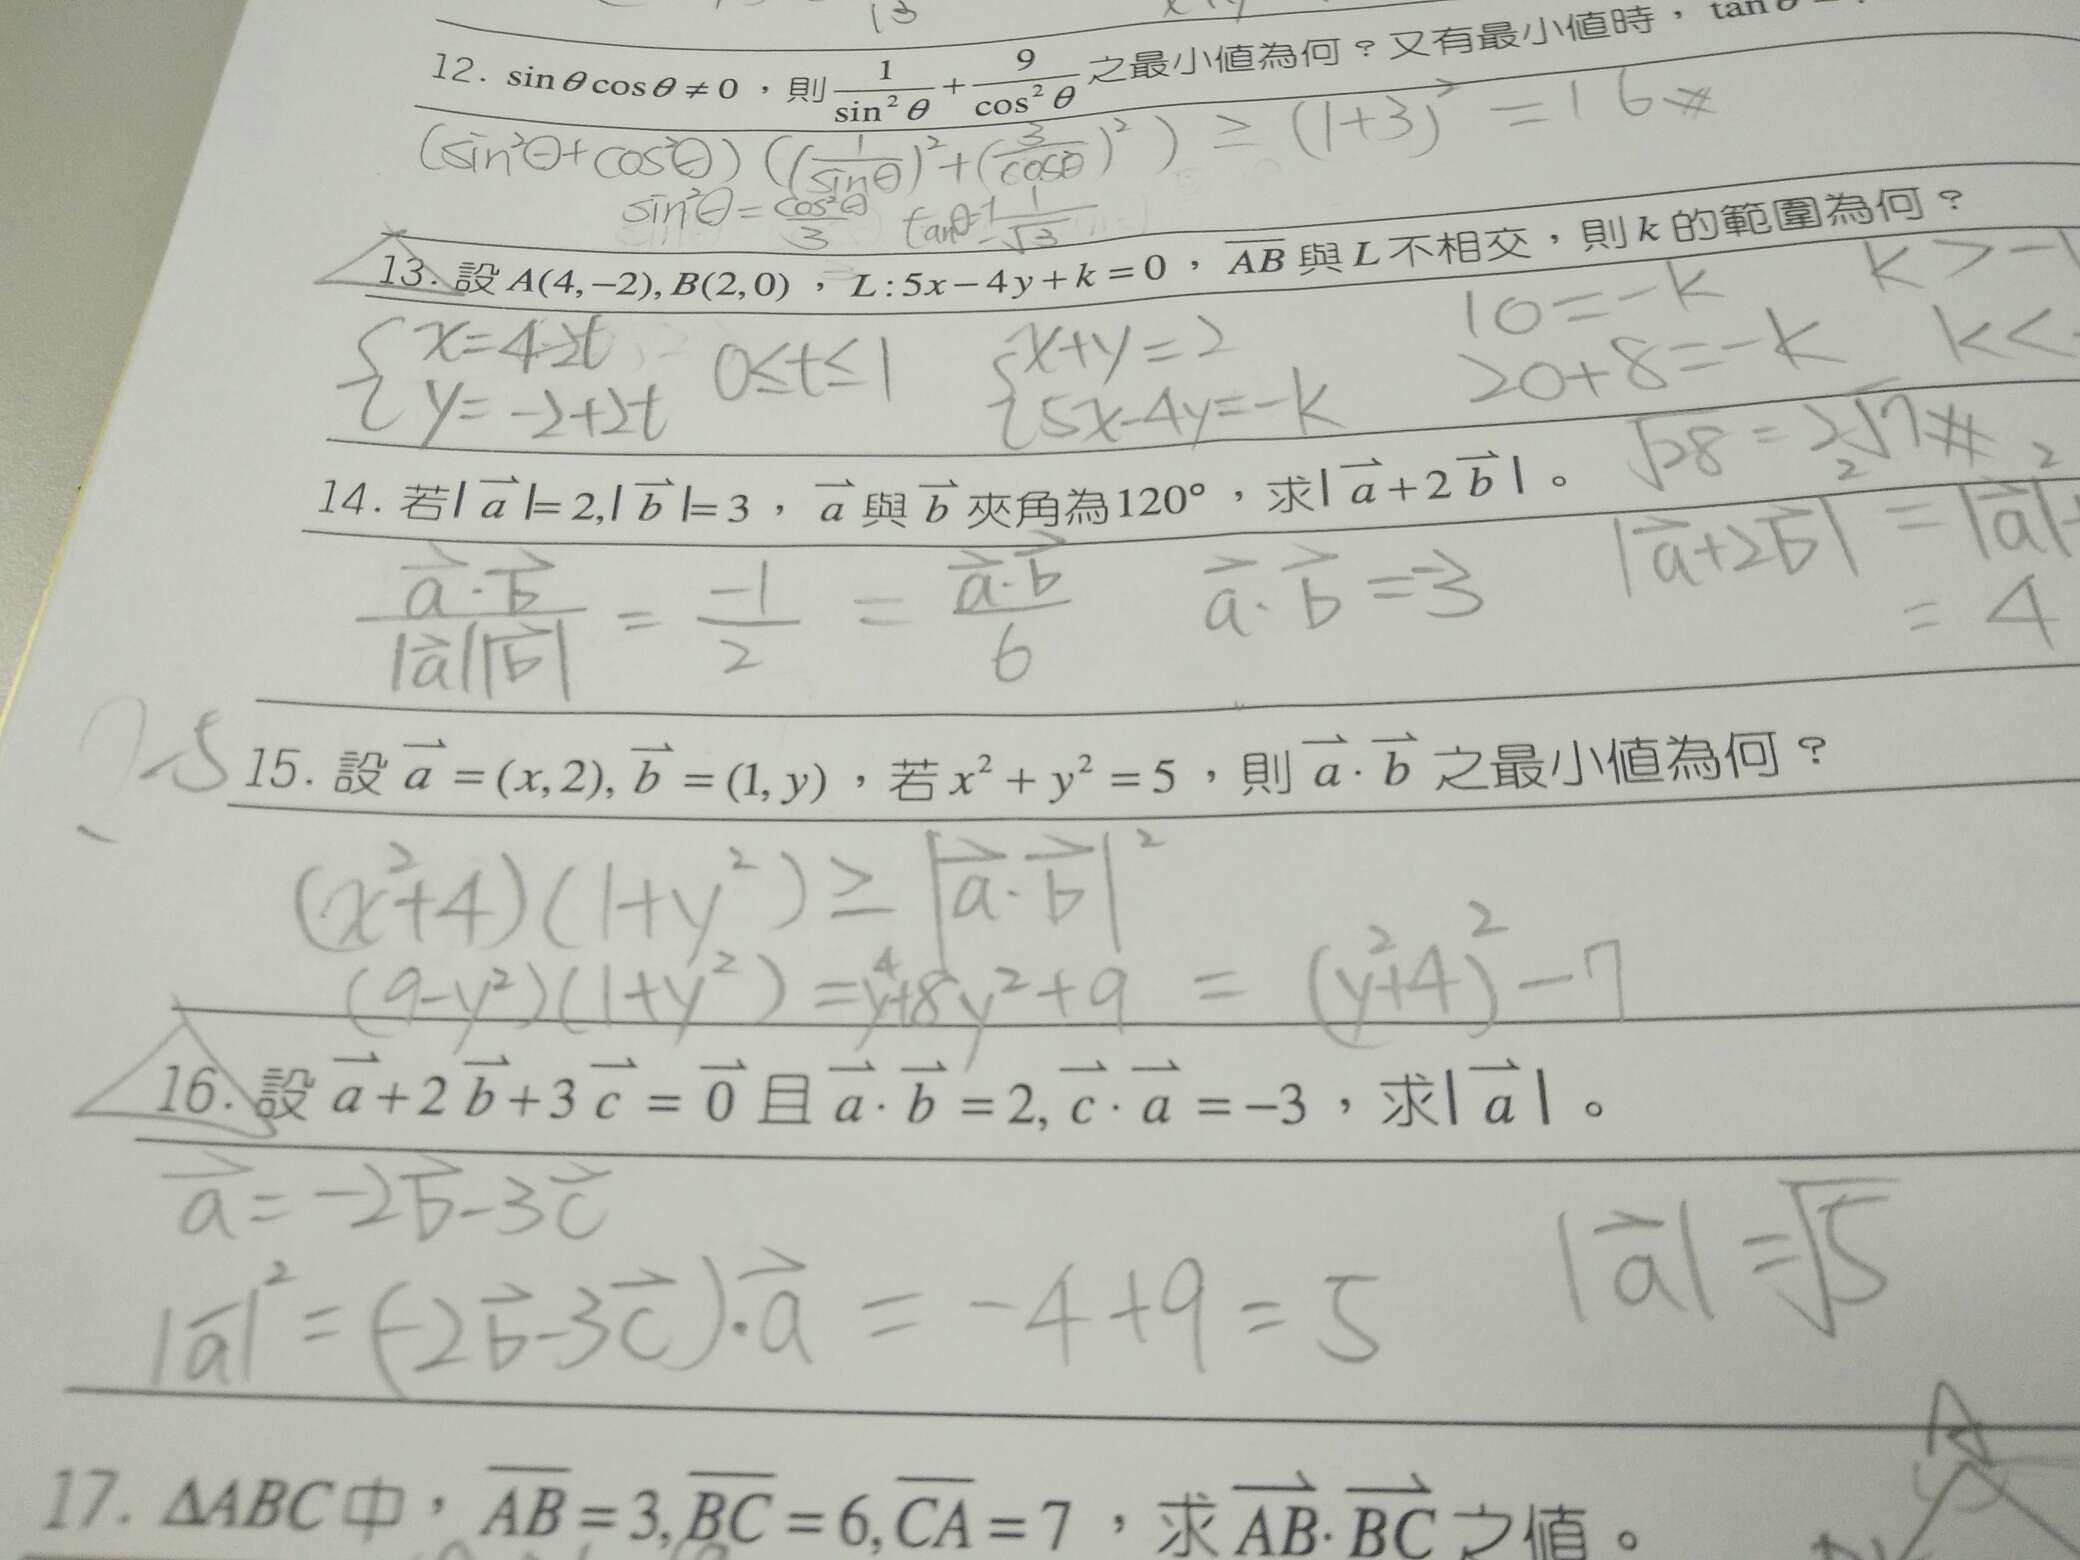 13
12. sinθcosθ≠0，則 1/sin²θ + 9/cos²θ 之最小值為何？又有最小值時，tanθ
(sin²θ+cos²θ)((1/sinθ)²+(3/cosθ)²) ≥ (1+3)² = 16#
sin²θ=cos²θ/3 tanθ=±1/√3
13. 設A(4,−2),B(2,0)，L:5x−4y+k=0，AB與L不相交，則k的範圍為何？
{x=4-2t 0≤t≤1 {x+y=2 10=-k k>-1
y=-2+2t 5x-4y=-k 20+8=-k k<
√28=2√7#
14. 若|a|=2,|b|=3，a與b夾角為120°，求|a+2b|。
a·b/|a||b| = -1/2 = a·b/6 a·b=-3 |a+2b|²=|a|²+
=4
25
15. 設a=(x,2),b=(1,y)，若x²+y²=5，則a·b之最小值為何？
(x²+4)(1+y²)≥|a·b|²
(9-y²)(1+y²)=y⁴+8y²+9 = (y²+4)²-7
16. 設a+2b+3c=0且a·b=2,c·a=−3，求|a|。
a=-2b-3c
|a|²=(-2b-3c)·a = -4+9=5 |a|=√5
A
17. ΔABC中，AB=3,BC=6,CA=7，求AB·BC之值。